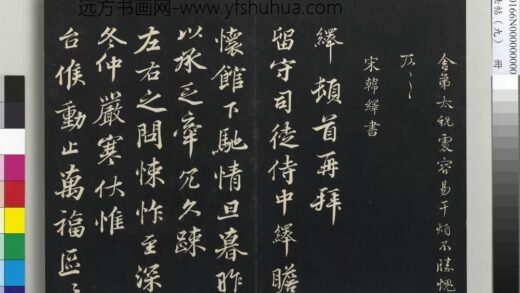 远方书画网-www.yfshuhua.com
帖（九） 冊
0166N000000000
舍弟太祝處容易干煩不勝愧
宋韓繹書
繹頓首再拜
留守司徒侍中繹瞻
懷館下馳情旦暮昨
以承乏牽冗久疎
左右之問悚怍至深
冬仲嚴寒伏惟
台候動止萬福區〻